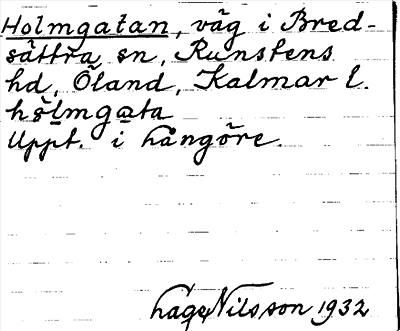 Holmgatan, väg i Bred-
sättra sn, Runstens
hd, Öland, Kalmar l.
hŏlmgata
Uppt. i Långöre.
Nilsson 1932